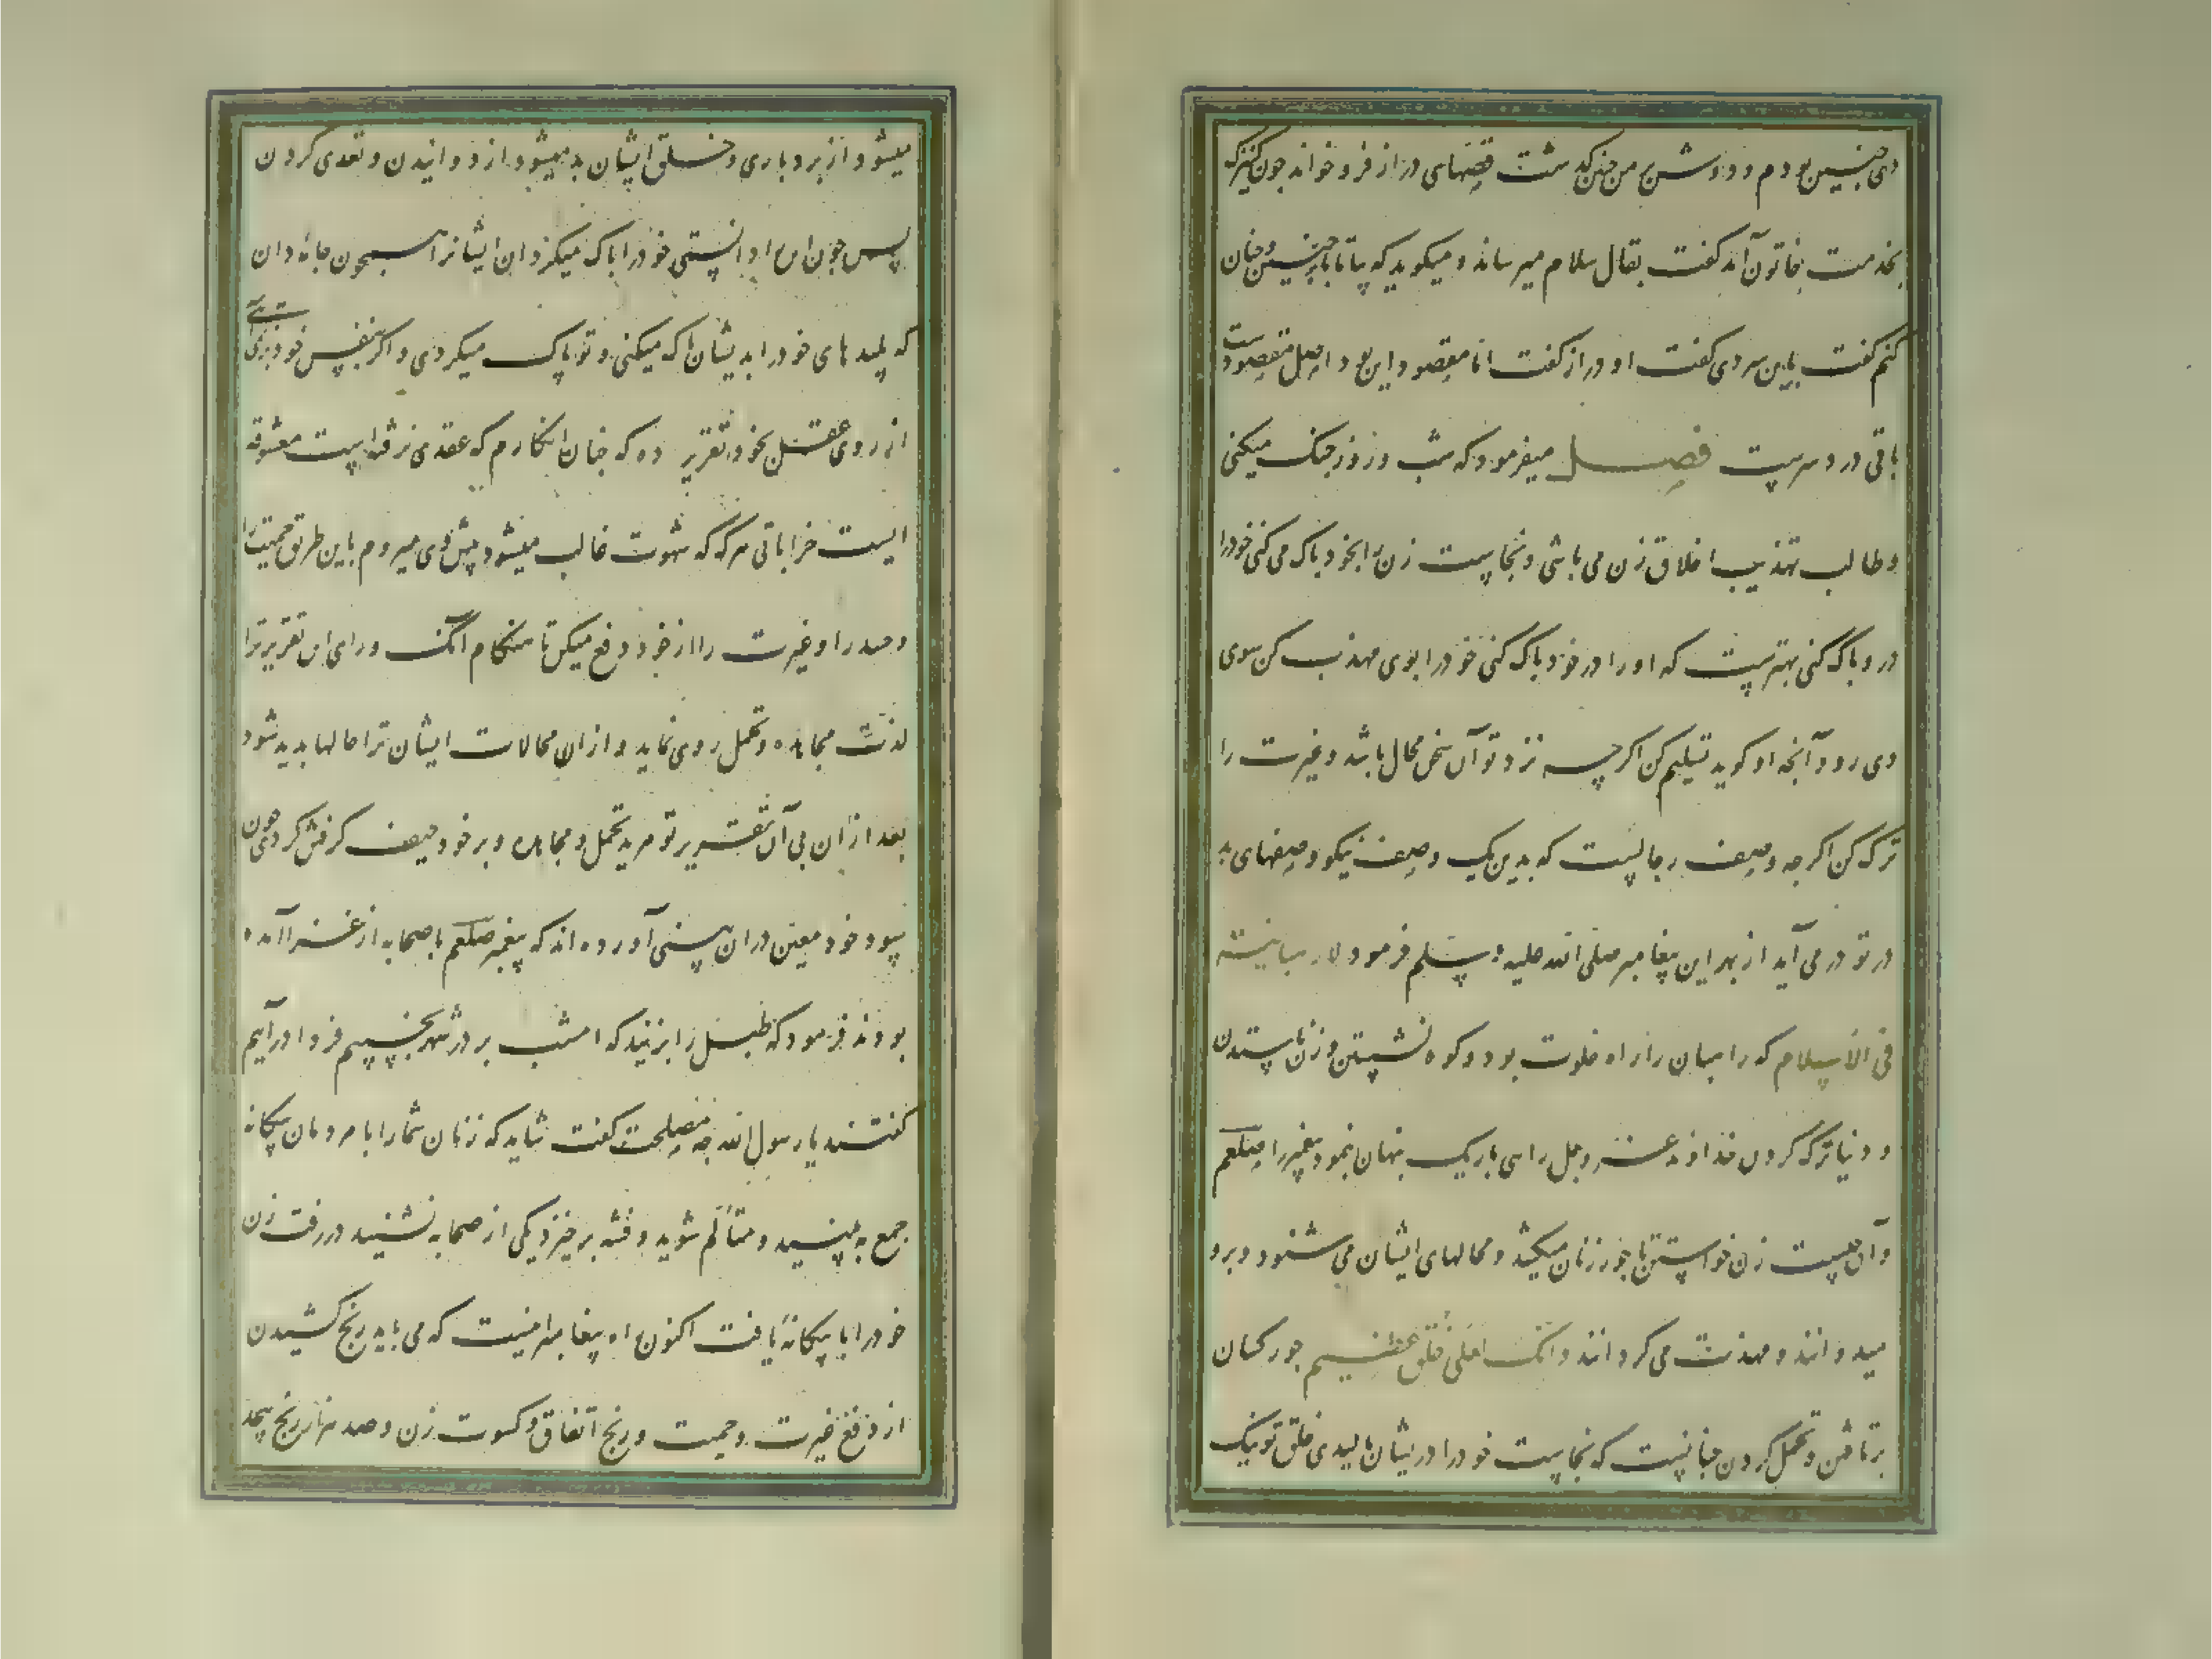 دی چنین بودم و دوش بر من چنین گذشت قصّهای دراز فرو خواند چون کنیزک
بخدمت خاتون آمد گفت بقال سلام میرساند و میکوید که بیا تا با تو چنین و چنان
کنم گفت باین سردی گفت او دراز گفت اما مقصود این بود اصل مقصودست
باقی دردسرست فصل میفرمود که شب و روز جنک میکنی
و طالب تهذیب اخلاق زن می باشی و نجاست زن را بخود پاک می کنی خود را
درو پاک کنی بهترست که او را در خود پاک کنی خود را بوی مهذب کن سوی
وی رو و آنچه او کوید تسلیم کن اکر چه نزد تو آن سخن محال باشد و غیرت را
ترک کن اکر چه وصف رجالست که بدین یک وصف نیکو وصفهای بد
در تو در می آید از بهر این پیغامبر صلی الله علیه و سلم فرمود لا رهبانیته
فی الاسلام که راهبان را راه خلوت بود و کوه نشستن و زن ناستدن
و دنیا ترک کردن خداوند عز و جل راهی باریک پنهان بنمود پیغمبر را صلعم
و آن چیست زن خواستن تا جور زنان میکشد و محالهای ایشان می شنود و برو
میدوانند و مهذب می کردانند و انک لعلی خلق عظیم جور کسان
برتافتن و تحمل کردن چنانست که نجاست خود را دریشان مالیدی خلق تو نیک
میشود از بردباری و خلق ایشان بد میشود از دوانیدن و تعدی کردن
پس چون این را دانستی خود را پاک میکردان ایشانرا همچون جامه دان
که پلیدهای خود را بدیشان پاک میکنی و تو پاک میکردی و اکر بنفس خود بر نمی آیی
از روی عقل بخود تقریر ده که چنان انکارم که عقدی نرفته است معشوقه
ایست خراباتی هرکه که شهوت غالب میشود پیش وی میروم باین طریق حمیت را
و حسد را و غیرت را از خود دفع میکن تا هنکام آنک ورای این تقریر ترا
لذت مجاهده و تحمل روی نماید و از ان محالات ایشان ترا حالها پدید شود
بعد ازان بی آن تقریر تو مرید تحمل و مجاهده و بر خود حیف کرفتن کردی چون
سود خود معین دران بینی آورده اند که پیغمبر صلعم با صحابه از غزا آمده
بودند فرمود که طبل را بزنید که امشب بر در شهر بخسپیم فردا درآییم
گفتند یا رسول الله چه مصلحت گفت شاید که زنان شما را با مردمان بیکانه
جمع بینید و متألم شوید و فتنه برخیزد یکی از صحابه نشنید در رفت زن
خود را با بیکانه یافت اکنون راه پیغامبر اینست که می باید رنج کشیدن
از دفع غیرت و حمیت و رنج انفاق و کسوت زن و صد هزار رنج بیحد